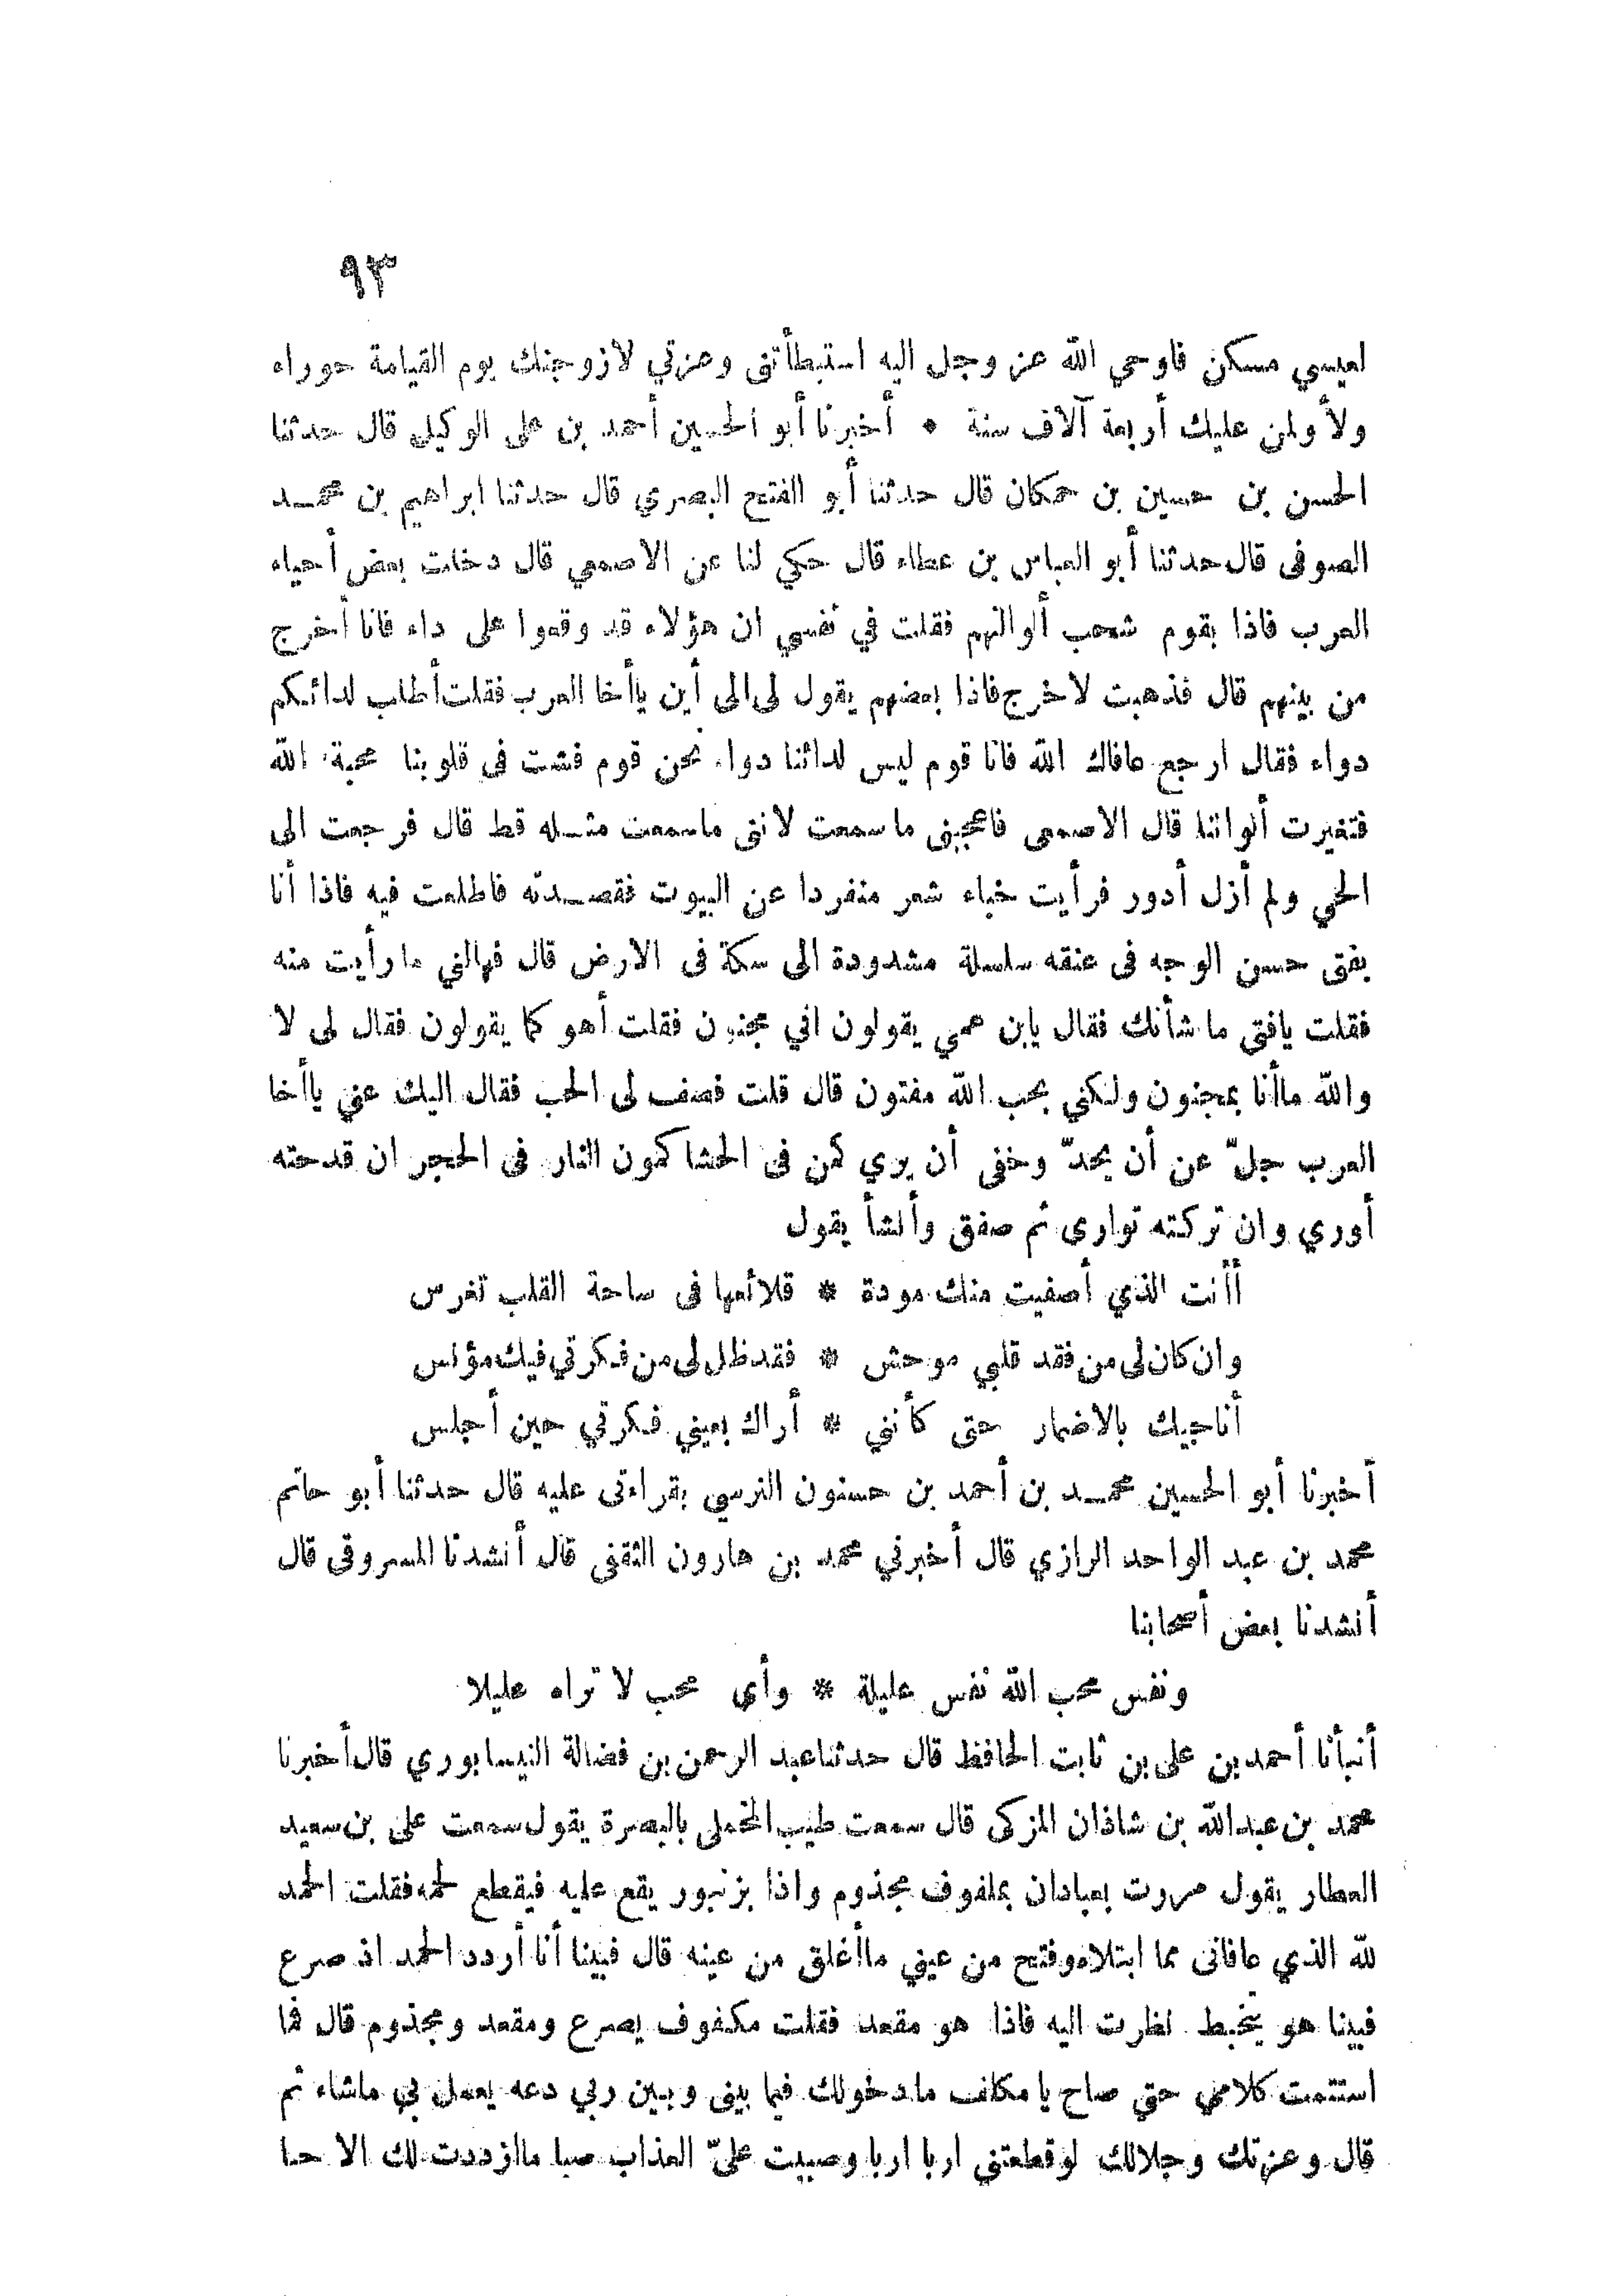 ٩٣
لعيسي مسكن فاوحي الله عز وجل اليه استبطأتنى وعزتي لازوجنك يوم القيامة حوراء
ولأولمن عليك أربعة آلاف سنة * أخبرنا أبو الحسين أحمد بن على الوكيل قال حدثنا
الحسن بن حسين بن حمكان قال حدثنا أبو الفتح البصري قال حدثنا ابراهيم بن محمد
الصوفى قال حدثنا أبو العباس بن عطاء قال حكي لنا عن الاصمعي قال دخلت بعض أحياء
العرب فاذا بقوم شحب ألوانهم فقلت في نفسي ان هؤلاء قد وقعوا على داء فانا أخرج
من بينهم قال فذهبت لاخرج فاذا بعضهم يقول لى الى أين ياأخا العرب فقلت أطلب لدائكم
دواء فقال ارجع عافاك الله فانا قوم ليس لدائنا دواء نحن قوم فشت فى قلوبنا محبة الله
فتغيرت ألواننا قال الاصمعى فاعجبنى ماسمعت لاننى ماسمعت مثله قط قال فرجعت الى
الحي ولم أزل أدور فرأيت خباء شعر منفردا عن البيوت فقصدته فاطلعت فيه فاذا أنا
بفتى حسن الوجه فى عنقه سلسلة مشدودة الى سكة فى الارض قال فهالني مارأيت منه
فقلت يافتى ماشأنك فقال يابن عمي يقولون اني مجنون فقلت أهو كما يقولون فقال لى لا
والله ماأنا بمجنون ولكني بحب الله مفتون قال قلت فصف لى الحب فقال اليك عني ياأخا
العرب جلّ عن أن يحدّ وخفى أن يري كمن فى الحشا كمون النار فى الحجر ان قدحته
أوري وان تركته توارى ثم صفق وأنشأ يقول
أأنت الذي أصفيت منك مودة * قلائعها فى ساحة القلب تغرس
وان كان لى من فقد قلبي موحش * فقد ظل لى من فكرتي فيك مؤنس
أناجيك بالاضمار حتى كأنني * أراك بعيني فكرتي حين أجلس
أخبرنا أبو الحسين محمد بن أحمد بن حسنون النرسي بقراءتى عليه قال حدثنا أبو حاتم
محمد بن عبد الواحد الرازي قال أخبرني محمد بن هارون الثقفى قال أنشدنا المسروقى قال
أنشدنا بعض أصحابنا
ونفس محب الله نفس عليلة * وأي محب لا تراه عليلا
أنبأنا أحمد بن على بن ثابت الحافظ قال حدثنا عبد الرحمن بن فضالة النيسابوري قال أخبرنا
محمد بن عبدالله بن شاذان المزكى قال سمعت طيب المخملى بالبصرة يقول سمعت على بن سعيد
العطار يقول مررت بعبادان بملفوف مجذوم واذا بزنبور يقع عليه فيقطع لحمه فقلت الحمد
لله الذي عافانى مما ابتلاه وفتح من عيني ماأغلق من عينه قال فبينا أنا أردد الحمد اذ صرع
فبينا هو يتخبط نظرت اليه فاذا هو مقعد فقلت مكفوف يصرع ومقعد ومجذوم قال فما
استتمت كلامي حتي صاح يا مكلف مادخولك فيما بينى وبين ربي دعه يعمل بي ماشاء ثم
قال وعزتك وجلالك لوقطعتني اربا اربا وصببت علىّ العذاب صبا ماازددت لك الا حبا